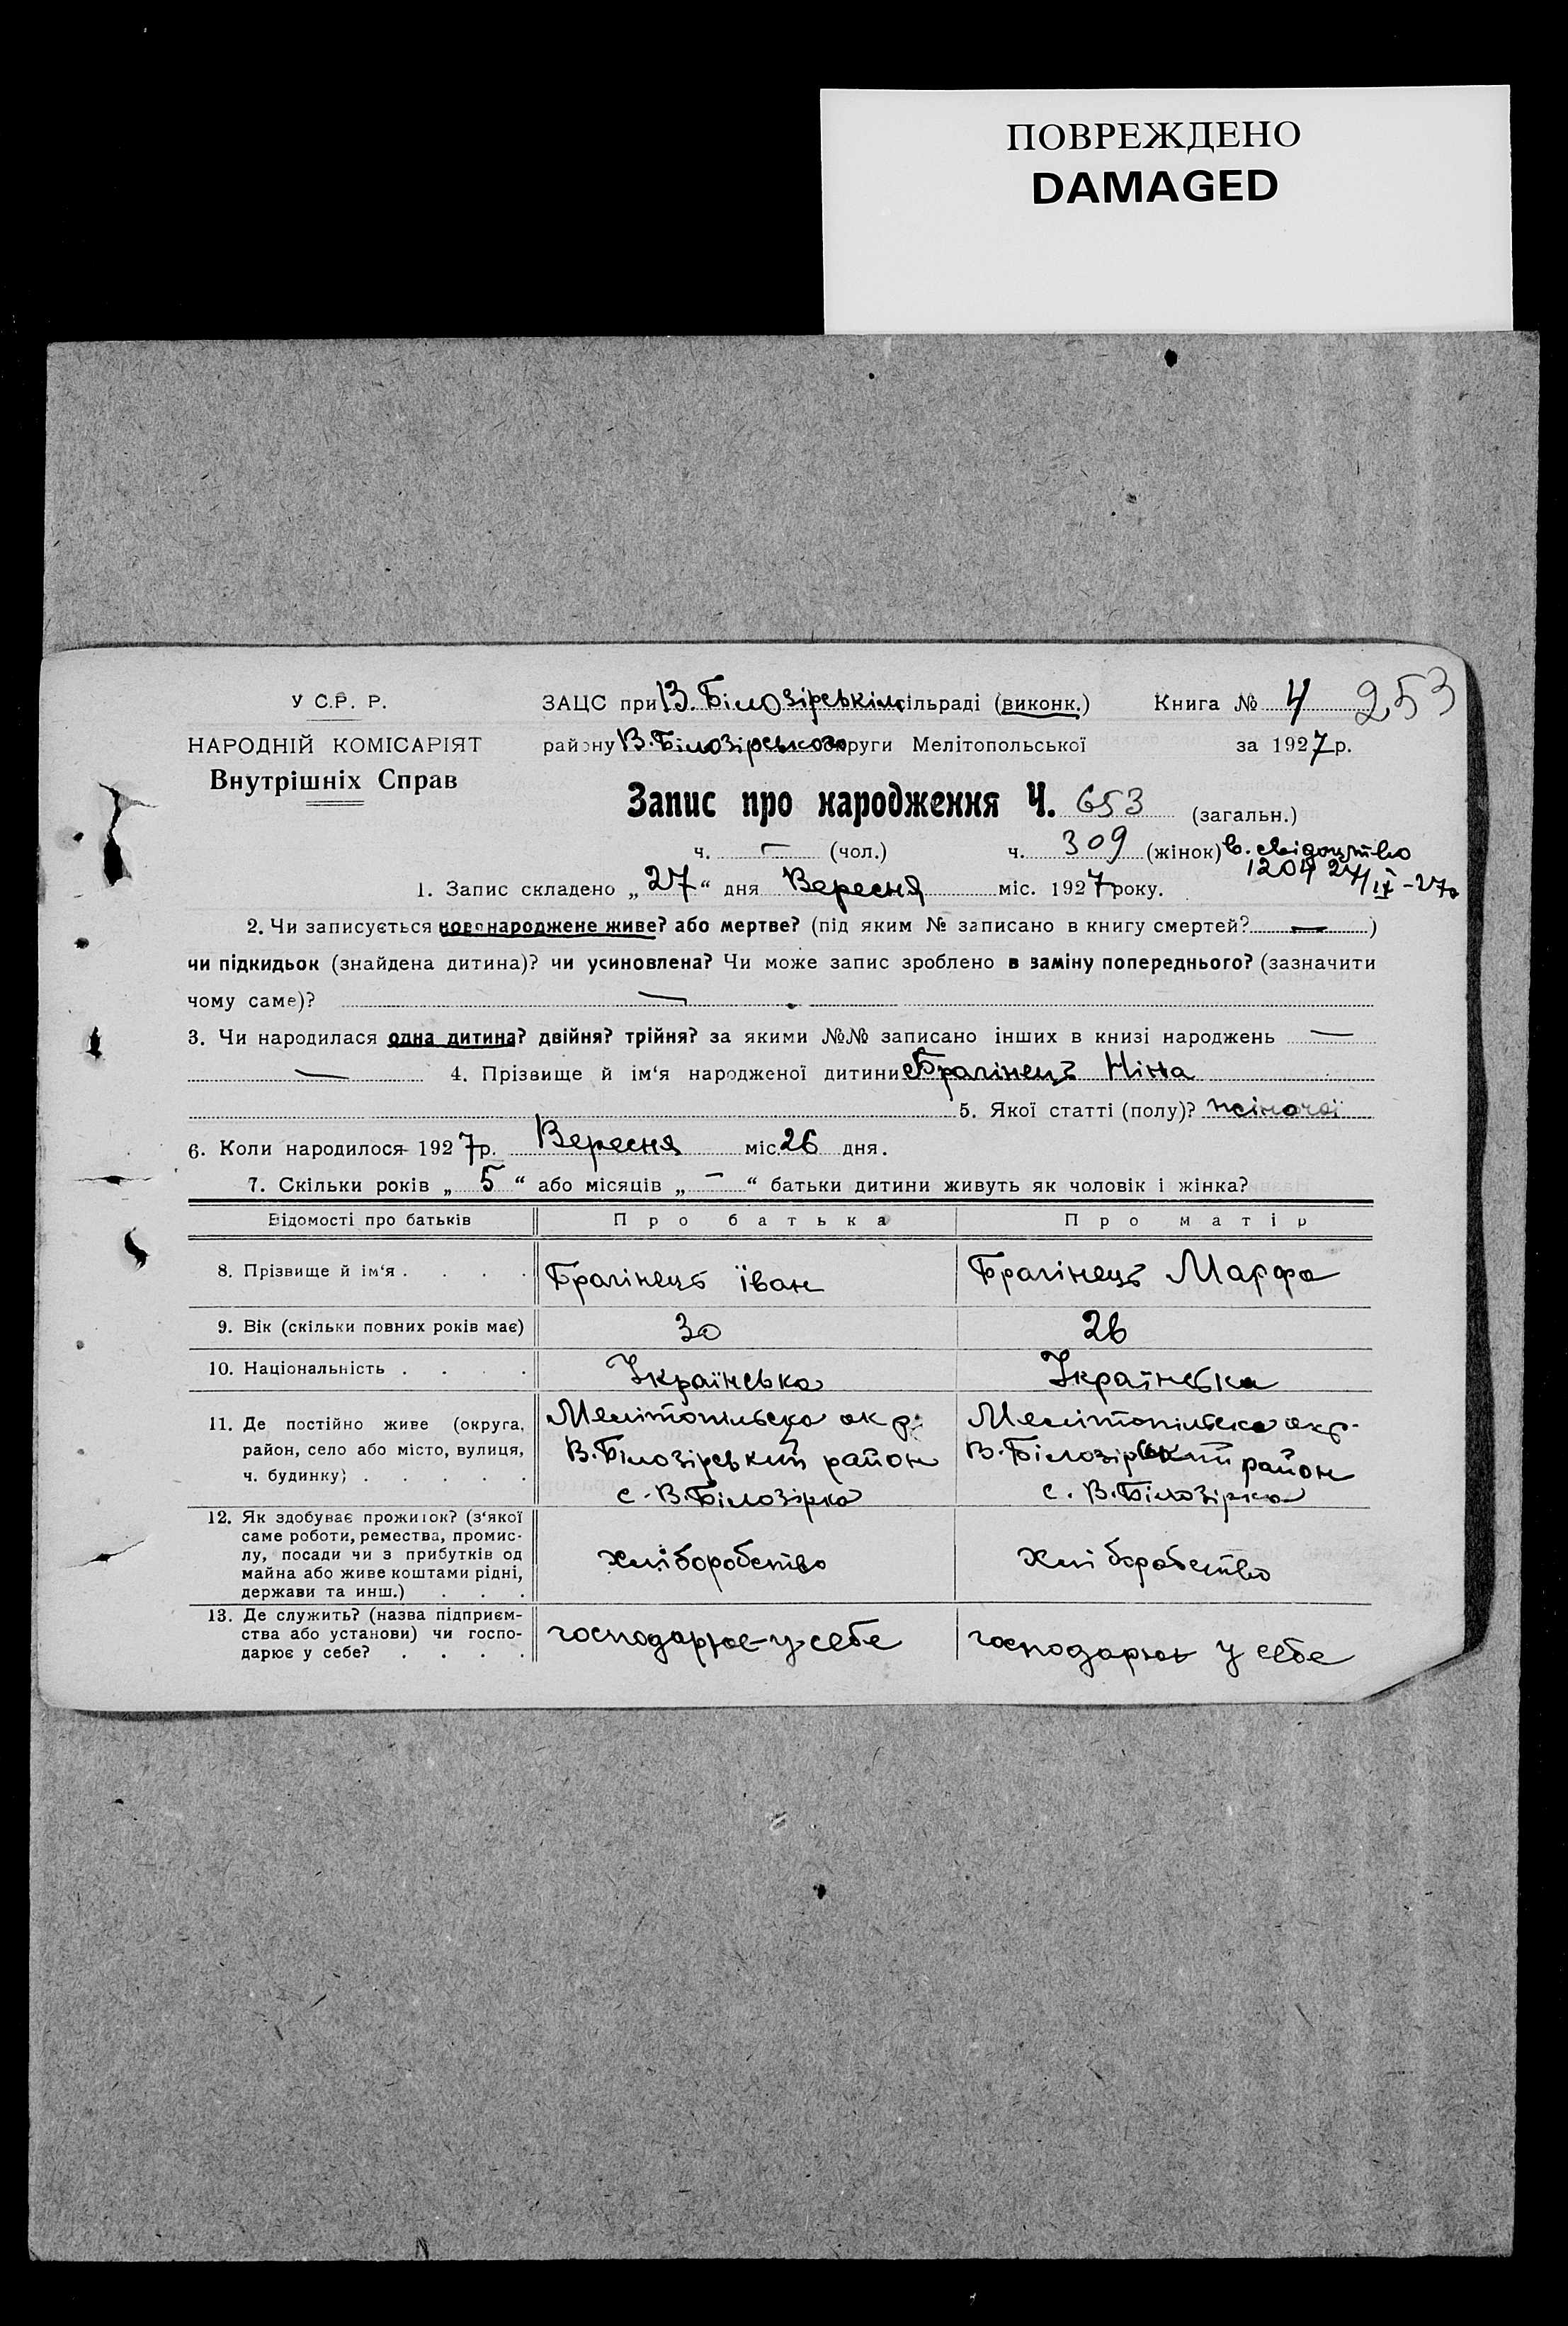 ПОВРЕЖДЕНО
DAMAGED
У С.Р. Р.
НАРОДНІЙ КОМІСАРІЯТ
Внутрішніх Справ
ЗАЦС при В. Білозірськім сільраді (виконк.) Книга № 4 253
району В. Білозірського округи Мелітопольської за 1927 р.
Запис про народження Ч. 653 (загальн.)
ч. — (чол.) ч. 309 (жінок) в. свідоцтво
1204 27/IX-27р
1. Запис складено „27“ дня Вересня міс. 1927 року.
2. Чи записується новонароджене живе? або мертве? (під яким № записано в книгу смертей? — )
чи підкидьок (знайдена дитина)? чи усиновлена? Чи може запис зроблено в заміну попереднього? (зазначити
чому саме)? —
3. Чи народилася одна дитина? двійня? трійня? за якими №№ записано інших в книзі народжень —
— 4. Прізвище й ім'я народженої дитини Брагінець Ніна
5. Якої статті (полу)? жіночої
6. Коли народилося 1927 р. Вересня міс. 26 дня.
7. Скільки років „5“ або місяців „—“ батьки дитини живуть як чоловік і жінка?
Відомості про батьків Про батька Про матір
8. Прізвище й ім'я . . . . Брагінець Їван Брагінець Марфа
9. Вік (скільки повних років має) 30 26
10. Національність . . . . Українська Українська
11. Де постійно живе (округа, Мелітопільска окр. Мелітопільска окр.
район, село або місто, вулиця, В. Білозірський район В. Білозірський район
ч. будинку) . . . . . с. В. Білозірка с. В. Білозірка
12. Як здобуває прожиток? (з'якої
саме роботи, ремества, промис-
лу, посади чи з прибутків од хліборобство хліборобство
майна або живе коштами рідні,
держави та инш.) . . .
13. Де служить? (назва підприєм-
ства або установи) чи госпо- господарює у себе господарює у себе
дарює у себе? . . . .